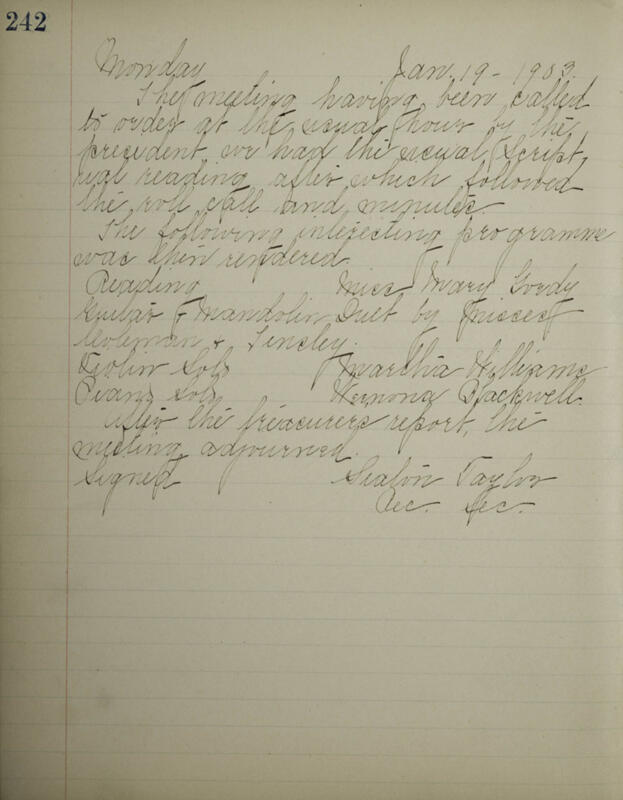 242
Monday Jan. 19 - 1903.
The meeting having been called
to order at the usual hour by the
president we had the usual script
ural reading after which followed
the roll call and minutes.
The following interesting programme
was then rendered.
Reading Miss Mary Gordy
Guitar & Mandolin Duet by Misses
Coleman & Tinsley.
Violin Solo Martha Williams
Piano Solo Blackwell.
After the treasurers report, the
meeting adjourned.
Signed Seaton Taylor
Rec. Sec.